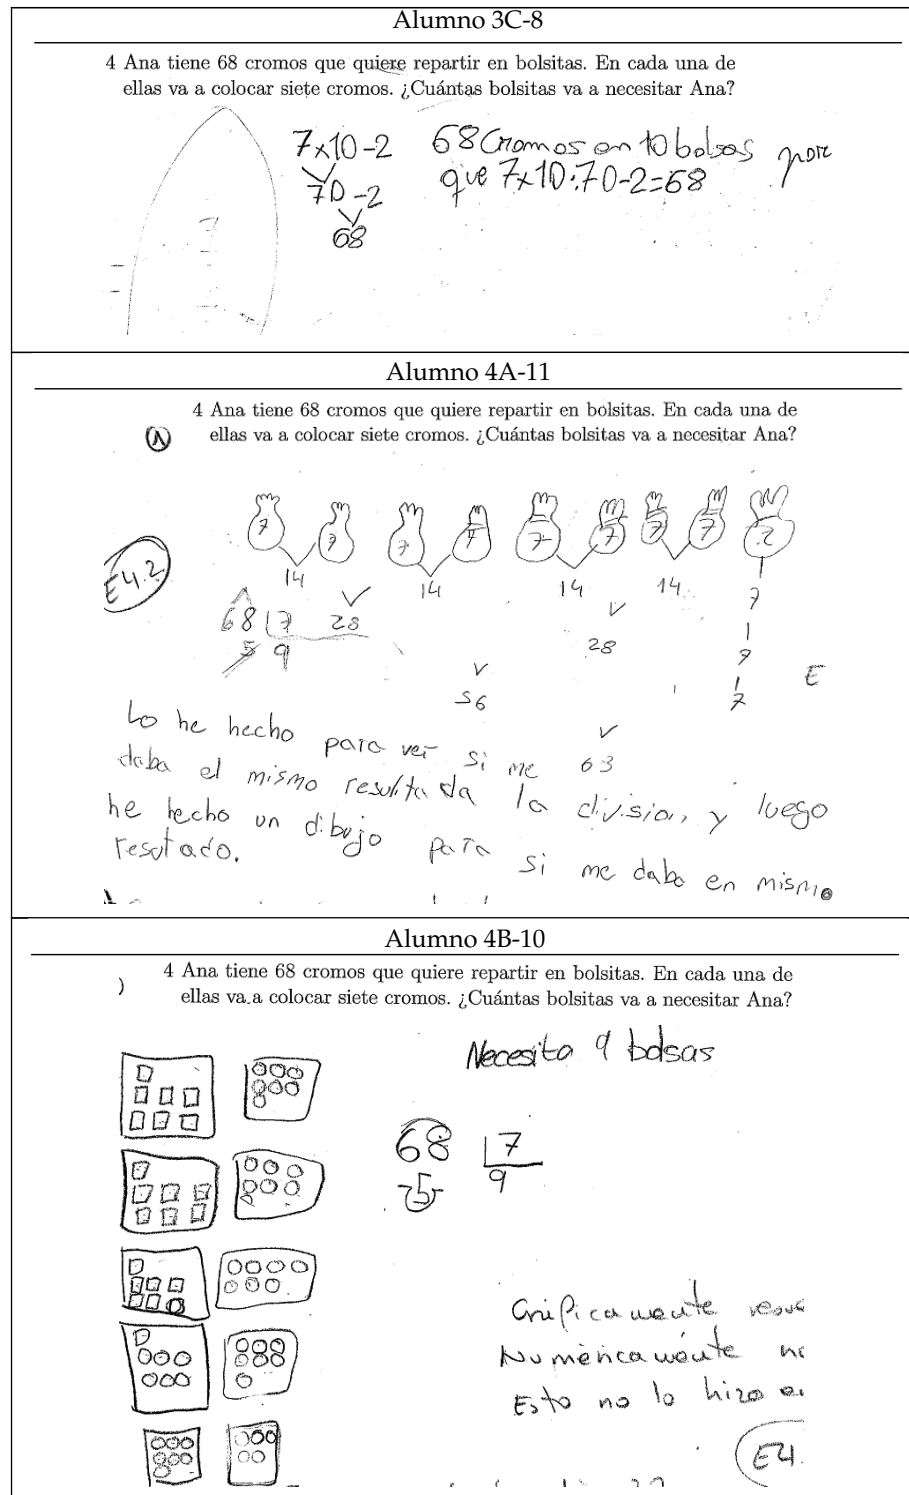 Alumno 3C-8
4 Ana tiene 68 cromos que quiere repartir en bolsitas. En cada una de
ellas va a colocar siete cromos. ¿Cuántas bolsitas va a necesitar Ana?
7x10-2
70-2
68
68 Cromos en 10 bolsas por
que 7x10:70-2=68
Alumno 4A-11
4 Ana tiene 68 cromos que quiere repartir en bolsitas. En cada una de
ellas va a colocar siete cromos. ¿Cuántas bolsitas va a necesitar Ana?
7 7 7 7 7 7 7 7
14 14 14 14
E4.2
68 7 28
5 9
28
56
63
7
7
7
E
Lo he hecho para ver si me
daba el mismo resultada la division, y luego
he hecho un dibujo para si me daba en mismo
resutado.
Alumno 4B-10
4 Ana tiene 68 cromos que quiere repartir en bolsitas. En cada una de
ellas va a colocar siete cromos. ¿Cuántas bolsitas va a necesitar Ana?
Necesito 9 bolsas
68 7
5 9
Gráficamente
Numéricamente
Esto no lo hizo
E4.